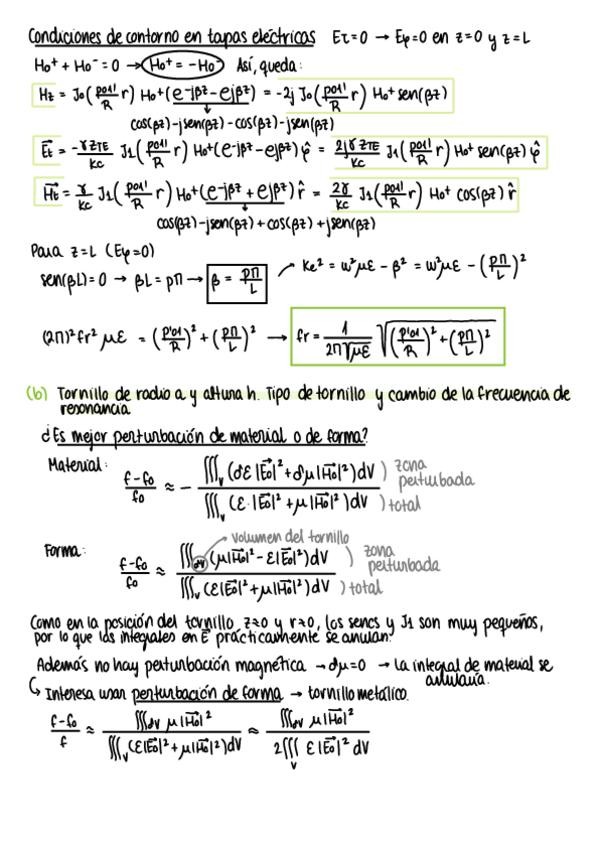 Condiciones de contorno en tapas eléctricas Eτ=0 → Eφ=0 en z=0 y z=L
Ho⁺ + Ho⁻ = 0 → Ho⁺ = -Ho⁻ Así, queda:
Hz = J0(p01'/R r) Ho⁺(e^-jβz - e^jβz) = -2j J0(p01'/R r) Ho⁺ sen(βz)
cos(βz)-jsen(βz)-cos(βz)-jsen(βz)
Et = -γZTE/kc J1(p01'/R r) Ho⁺(e^-jβz - e^jβz) φ̂ = 2jγZTE/kc J1(p01'/R r) Ho⁺ sen(βz) φ̂
Ht = γ/kc J1(p01'/R r) Ho⁺(e^-jβz + e^jβz) r̂ = 2γ/kc J1(p01'/R r) Ho⁺ cos(βz) r̂
cos(βz)-jsen(βz)+cos(βz)+jsen(βz)
Para z=L (Eφ=0)
sen(βL)=0 → βL = pΠ → β = pΠ/L
kc² = ω²με - β² = ω²με - (pΠ/L)²
(2Π)² fr² με = (p'01/R)² + (pΠ/L)² → fr = 1/(2Π√με) √((p'01/R)² + (pΠ/L)²)
(b) Tornillo de radio a y altura h. Tipo de tornillo y cambio de la frecuencia de
resonancia
¿Es mejor perturbación de material o de forma?
Material: (f-fo)/fo ≈ - ∭v (δε |Eo|² + δμ |Ho|²) dV / ∭v (ε·|Eo|² + μ|Ho|²) dV
) zona perturbada
) total
volumen del tornillo
Forma: (f-fo)/fo ≈ ∭δV (μ|Ho|² - ε|Eo|²) dV / ∭v (ε|Eo|² + μ|Ho|²) dV
) zona perturbada
) total
Como en la posición del tornillo z≈0 y r≈0, los senos y J1 son muy pequeños,
por lo que las integrales en E prácticamente se anulan.
Además no hay perturbación magnética → δμ=0 → la integral de material se
anularía.
↳ Interesa usar perturbación de forma → tornillo metálico.
(f-fo)/f ≈ ∭δV μ|Ho|² / ∭v (ε|Eo|² + μ|Ho|²) dV ≈ ∭δV μ|Ho|² / 2∭v ε|Eo|² dV